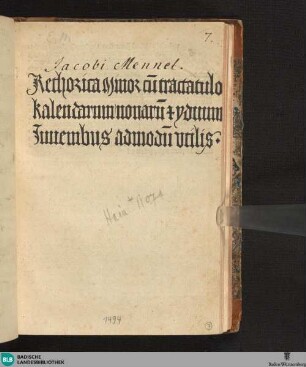 7.
Jacobi Mennel.
Rethorica Minor cū tractatulo
kalendarum nonarū ⁊ yduum
Iuuenibus admodū vtilis.
Hain
1494
BLB BADISCHE
LANDESBIBLIOTHEK
Baden-Württemberg